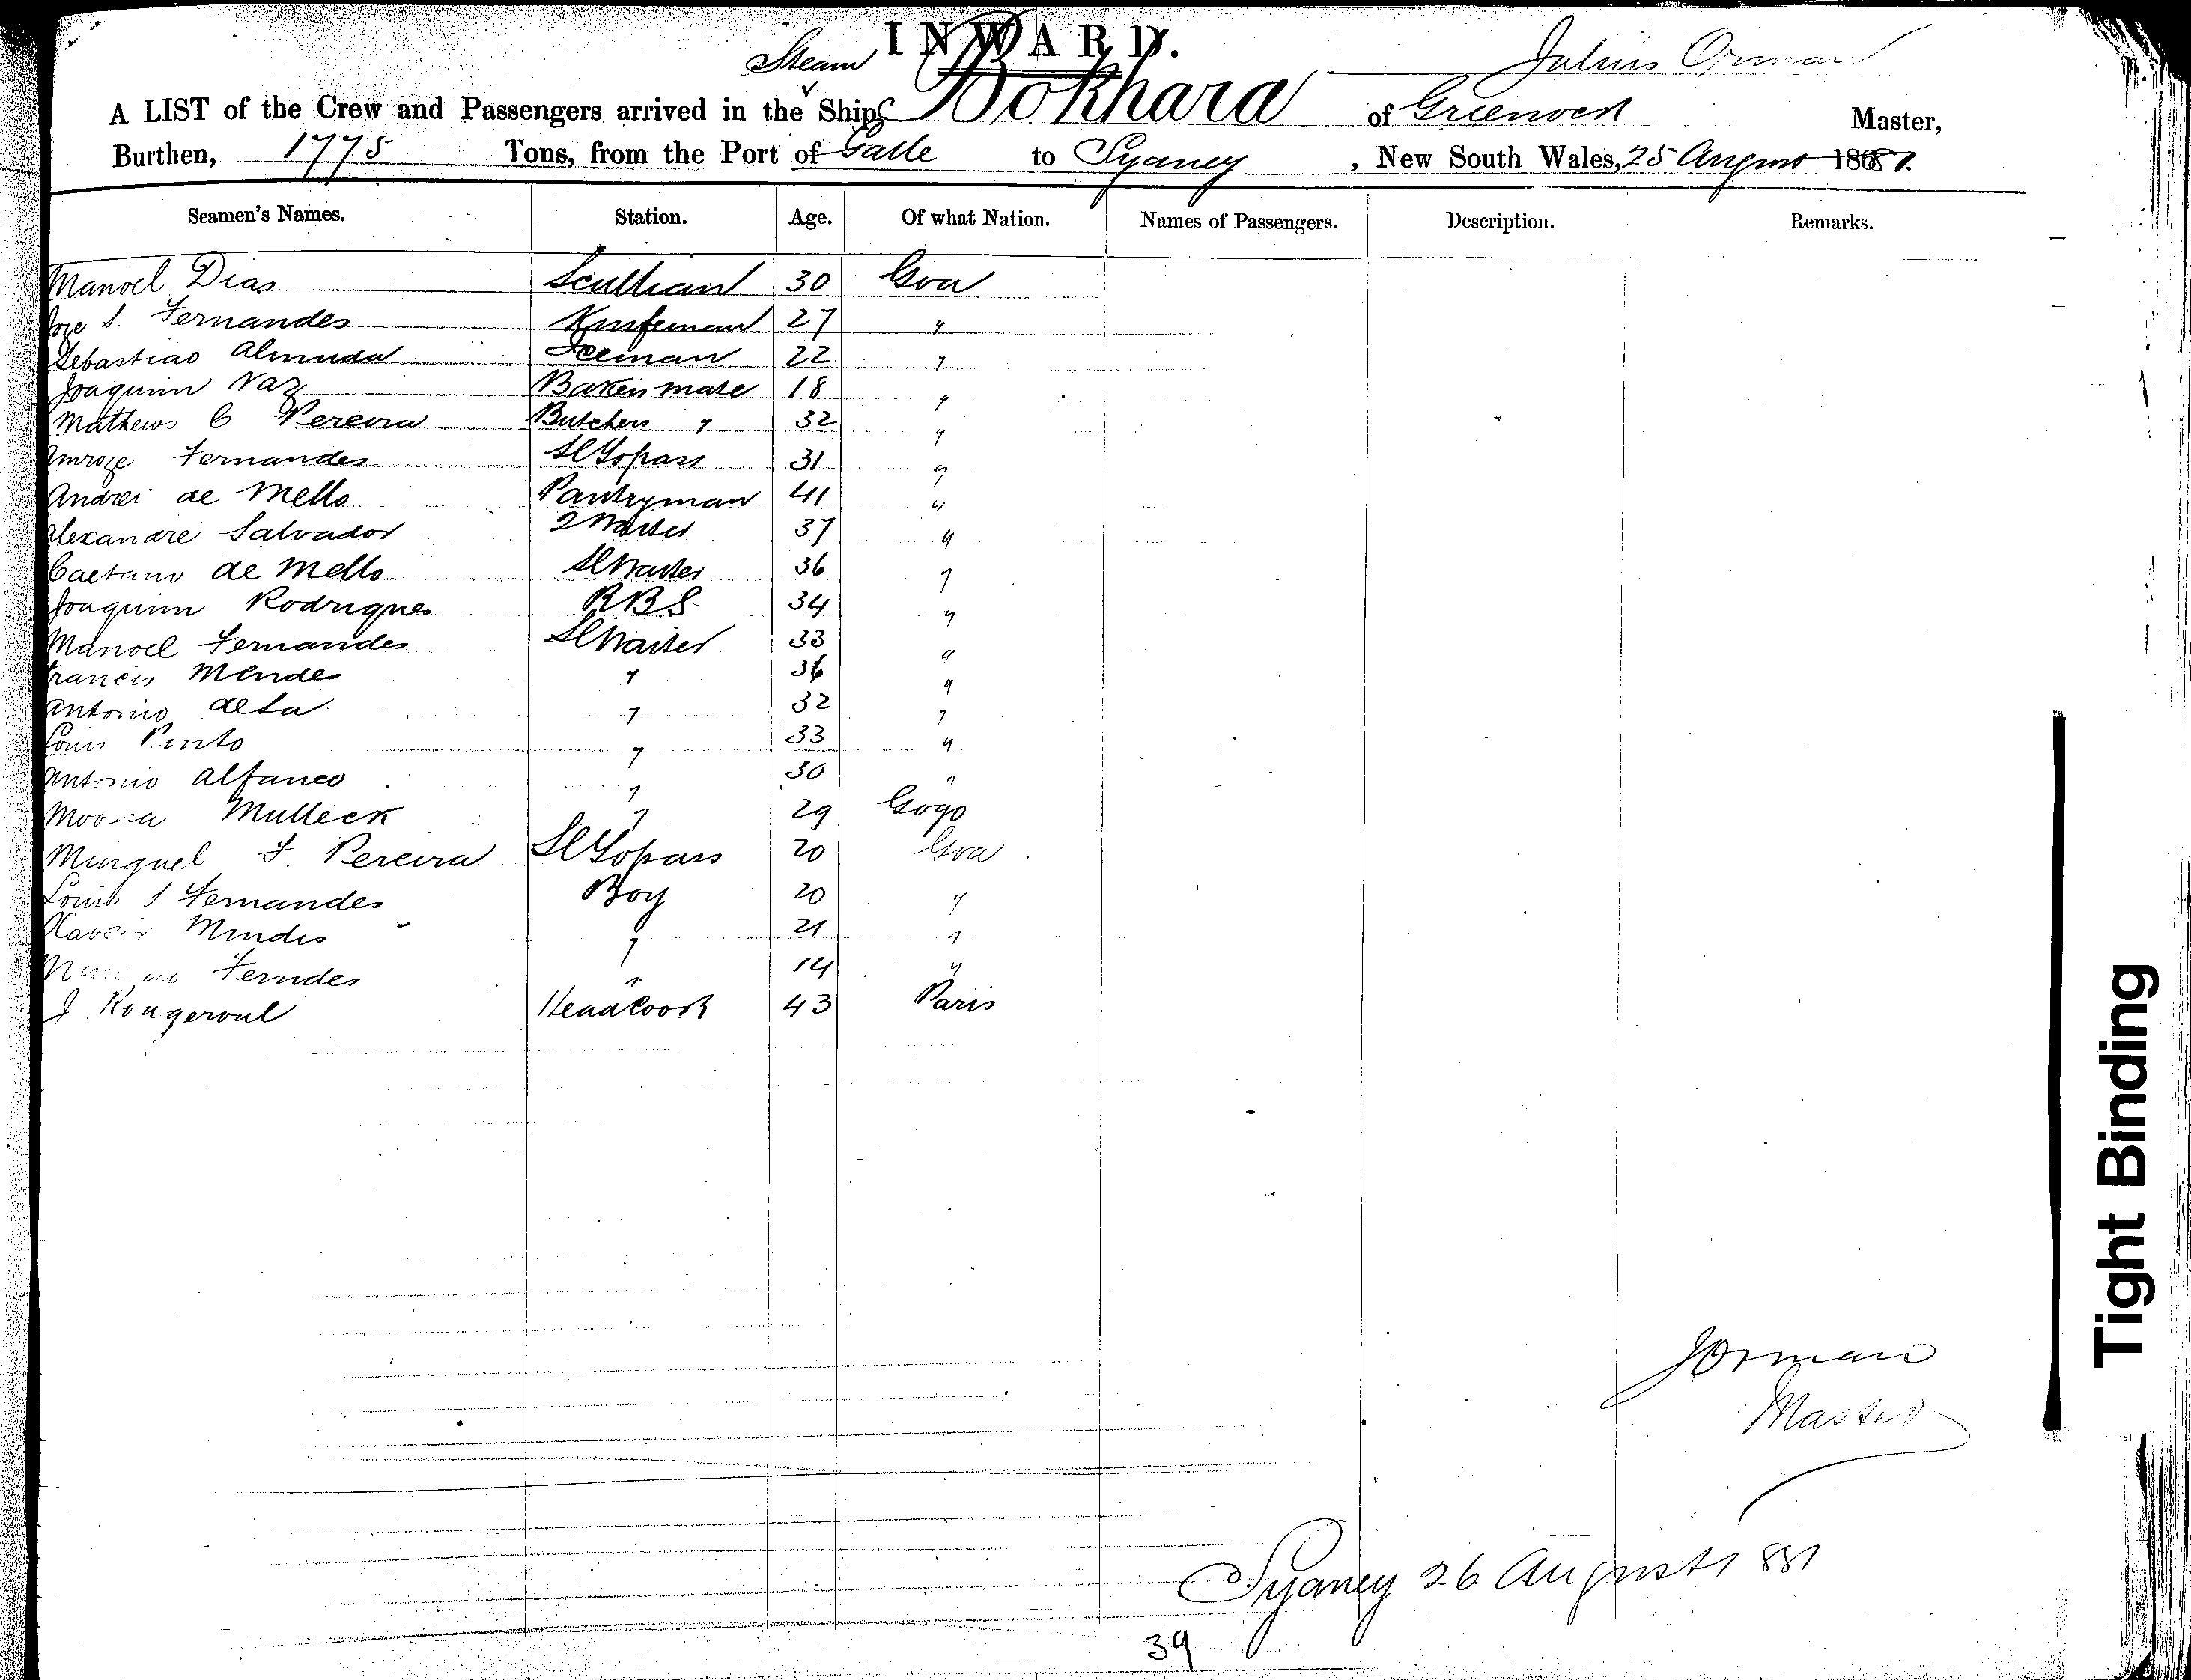 INWARD.
Steam Julius Orman
A LIST of the Crew and Passengers arrived in the Ship Bokhara of Greenock Master,
Burthen, 1775 Tons, from the Port of Galle to Sydney, New South Wales, 25 August 1881.
Seamen's Names. Station. Age. Of what Nation. Names of Passengers. Description. Remarks.
Manoel Dias Scullian 30 Goa
Joze S. Fernandes Knifeman 27 "
Sebastiao Almuda Iceman 22 "
Joaquim Vaz Bakers mate 18 "
Mathews C Pereira Butchers " 32 "
Amroze Fernandes SlTopass 31 "
Andrei de Mello Pantryman 41 "
Alexandre Salvador 2 Waiter 37 "
Caetano de Mello SlWaiter 36 "
Joaquim Rodrigues RBS 34 "
Manoel Fernandes SlWaiter 33 "
Francis Mende " 36 "
Antonio deSa " 32 "
Louis Pinto " 33 "
Antonio Alfanco " 30 "
Moosa Mulleck " 29 Gogo
Minguel F. Pereira SlTopass 20 Goa
Louis S Fernandes Boy 20 "
Xaveir Mendis " 21 "
Ferndes " 14 "
J. Rougeroul Head Cook 43 Paris
JOrman
Master
Sydney 26 August 1881
39
Tight Binding